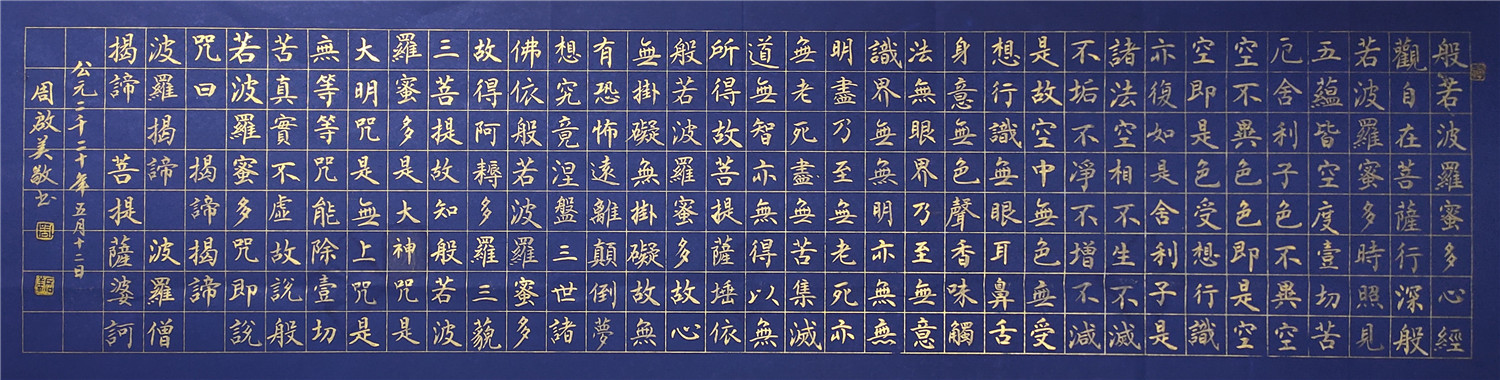 般若波羅蜜多心經
觀自在菩薩行深般
若波羅蜜多時照見
五蘊皆空度壹切苦
厄舍利子色不異空
空不異色色即是空
空即是色受想行識
亦復如是舍利子是
諸法空相不生不滅
不垢不淨不增不減
是故空中無色無受
想行識無眼耳鼻舌
身意無色聲香味觸
法無眼界乃至無意
識界無無明亦無無
明盡乃至無老死亦
無老死盡無苦集滅
道無智亦無得以無
所得故菩提薩埵依
般若波羅蜜多故心
無掛礙無掛礙故無
有恐怖遠離顛倒夢
想究竟涅盤三世諸
佛依般若波羅蜜多
故得阿耨多羅三藐
三菩提故知般若波
羅蜜多是大神咒是
大明咒是無上咒是
無等等咒能除壹切
苦真實不虛故說般
若波羅蜜多咒即說
咒曰 揭諦揭諦
波羅揭諦 波羅僧
揭諦 菩提薩婆訶
公元二千二十年五月十二日
周啟美敬书